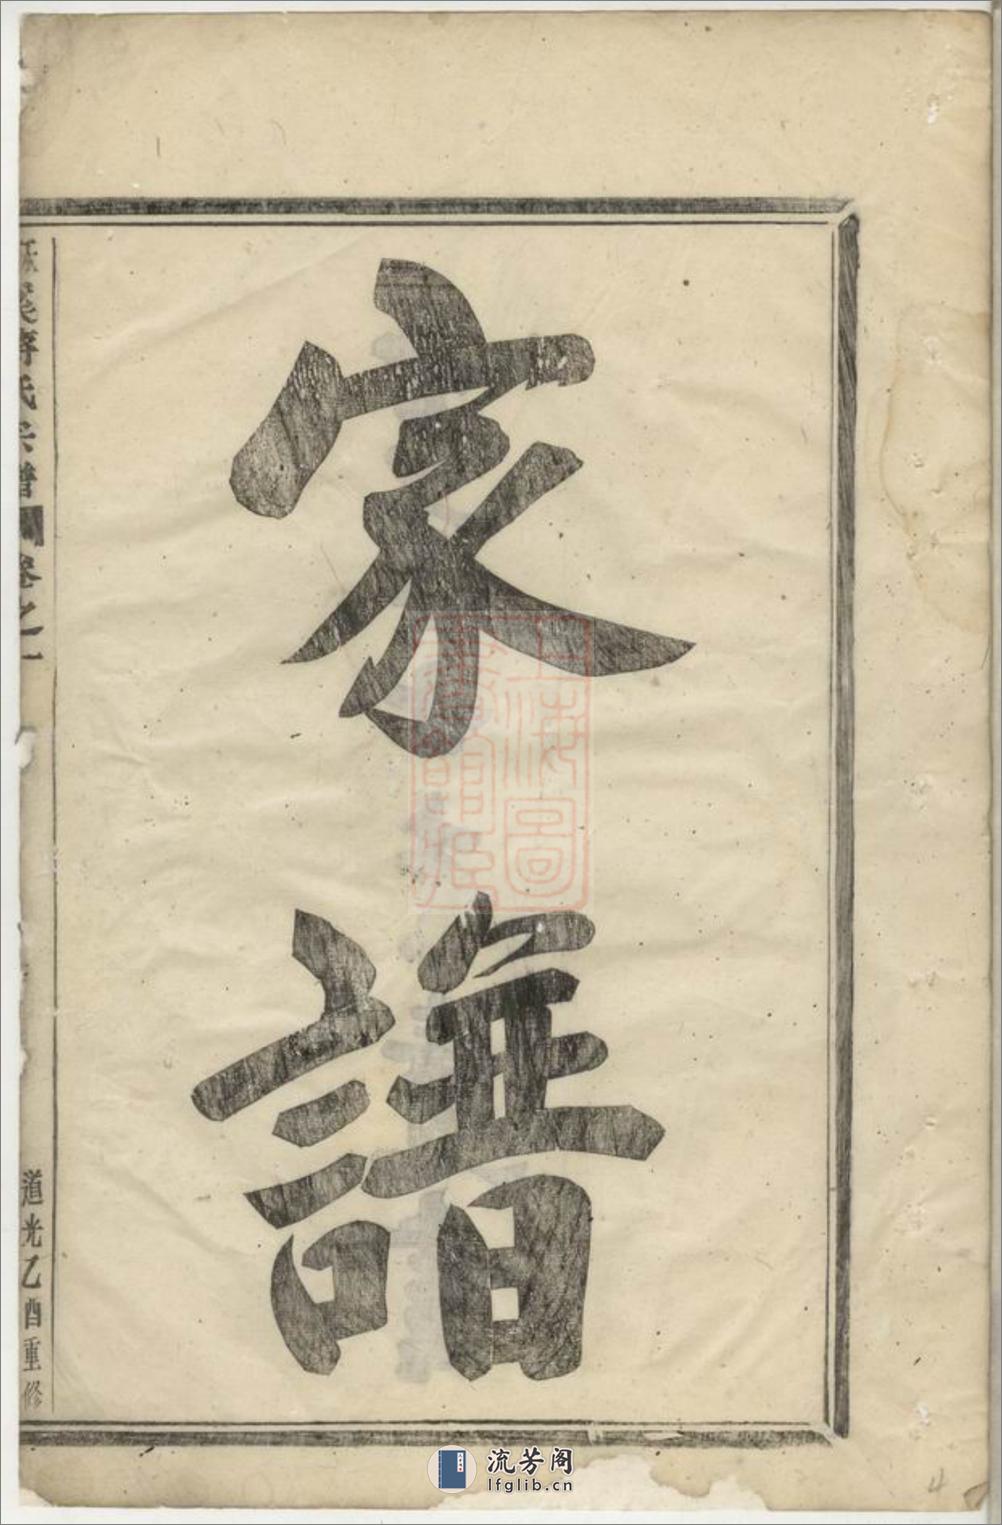 家譜
氏宗譜 卷之一
道光乙酉重修
上海圖
書館藏
流芳阁
lfglib.cn
4